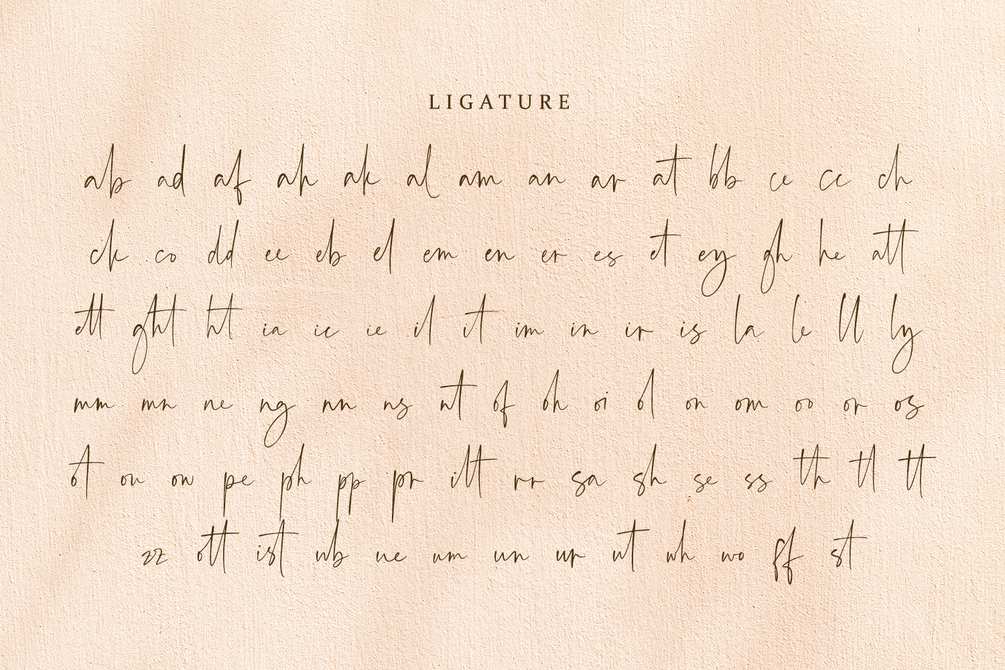 LIGATURE
ab ad af ah ak al am an ar at bb ce cc ch
ck co dd ee eb el em en er es et ey gh he att
ett ght ht ia ic ie il it im in ir is la le ll ly
mm mn ne ng nn ns nt of oh oi ol on om oo or os
ot ou ow pe ph pp pr itt rr sa sh se ss th tl tt
zz ott ist ub ue um un up ut wh wo ff st